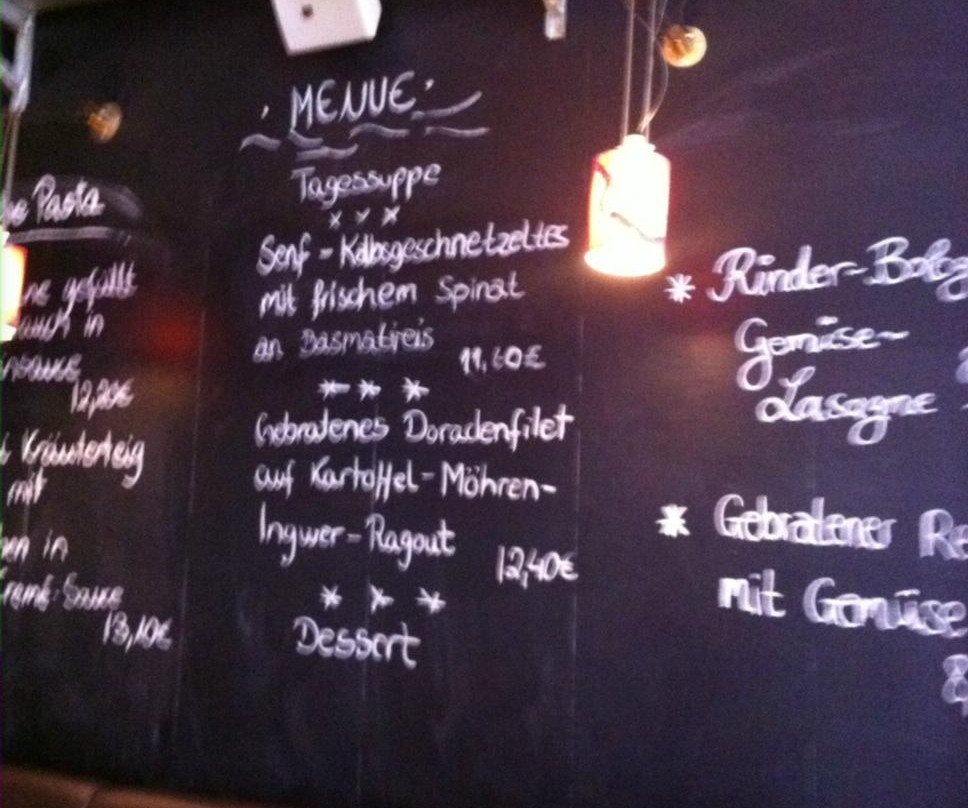 Pasta
gefüllt
auch in
12,20€
Kräuterteig
mit
in
Sauce
13,10€
MENUE
Tagessuppe
Senf-Kalbsgeschnetzeltes
mit frischem Spinat
an Basmatireis
11,60€
Gebratenes Doradenfilet
auf Kartoffel-Möhren-
Ingwer-Ragout
12,40€
Dessert
* Rinder-Bolog
Gemüse-
Lasagne
* Gebratener Re
mit Gemüse